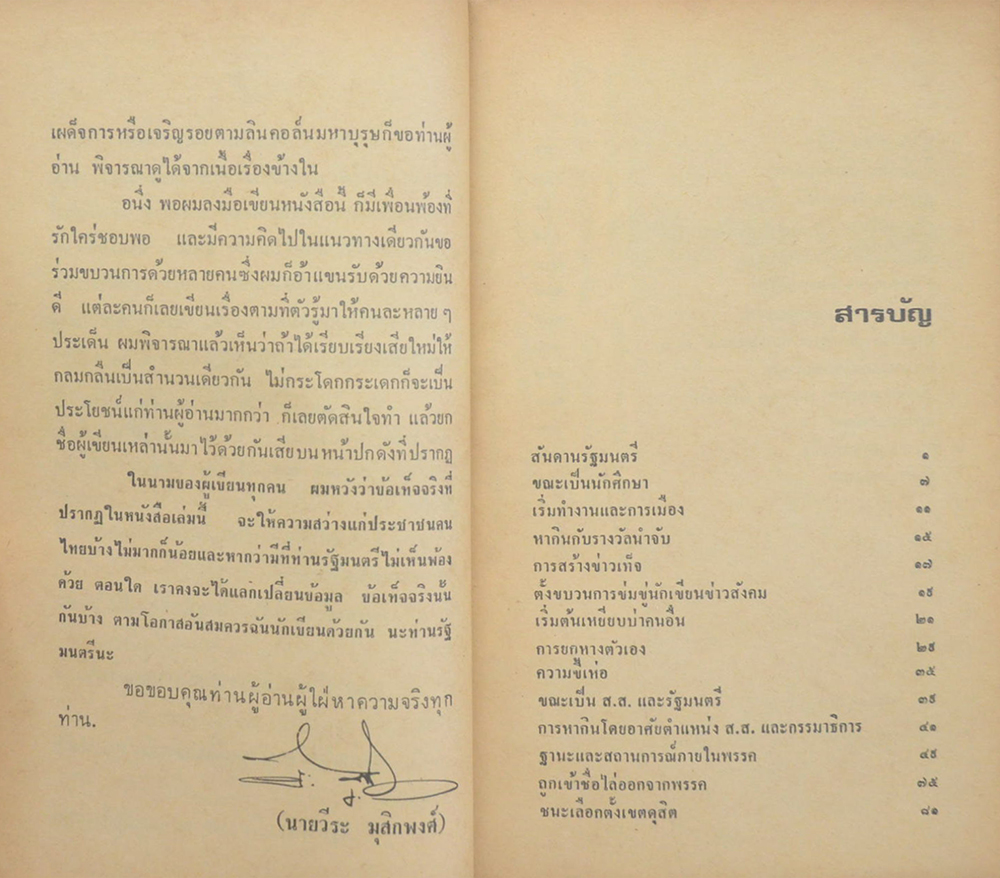 เผด็จการหรือเจริญรอยตามลินคอล์นมหาบุรุษก็ขอท่านผู้
อ่าน พิจารณาดูได้จากเนื้อเรื่องข้างใน
อนึ่ง พอผมลงมือเขียนหนังสือนี้ ก็มีเพื่อนพ้องที่
รักใคร่ชอบพอ และมีความคิดไปในแนวทางเดียวกันขอ
ร่วมขบวนการด้วยหลายคนซึ่งผมก็อ้าแขนรับด้วยความยิน
ดี แต่ละคนก็เลยเขียนเรื่องตามที่ตัวรู้มาให้คนละหลาย ๆ
ประเด็น ผมพิจารณาแล้วเห็นว่าถ้าได้เรียบเรียงเสียใหม่ให้
กลมกลืนเป็นสำนวนเดียวกัน ไม่กระโดกกระเดกก็จะเป็น
ประโยชน์แก่ท่านผู้อ่านมากกว่า ก็เลยตัดสินใจทำ แล้วยก
ชื่อผู้เขียนเหล่านั้นมาไว้ด้วยกันเสียบนหน้าปกดังที่ปรากฏ
ในนามของผู้เขียนทุกคน ผมหวังว่าข้อเท็จจริงที่
ปรากฏในหนังสือเล่มนี้ จะให้ความสว่างแก่ประชาชนคน
ไทยบ้างไม่มากก็น้อยและหากว่ามีที่ท่านรัฐมนตรีไม่เห็นพ้อง
ด้วย ตอนใด เราคงจะได้แลกเปลี่ยนข้อมูล ข้อเท็จจริงนั้น
กันบ้าง ตามโอกาสอันสมควรฉันนักเขียนด้วยกัน นะท่านรัฐ
มนตรีนะ
ขอขอบคุณท่านผู้อ่านผู้ใฝ่หาความจริงทุก
ท่าน.
(นายวีระ มุสิกพงศ์)
สารบัญ
สันดานรัฐมนตรี ๑
ขณะเป็นนักศึกษา ๗
เริ่มทำงานและการเมือง ๑๑
หากินกับรางวัลนำจับ ๑๕
การสร้างข่าวเท็จ ๑๗
ตั้งขบวนการข่มขู่นักเขียนข่าวสังคม ๑๙
เริ่มต้นเหยียบบ่าคนอื่น ๒๑
การยกหางตัวเอง ๒๙
ความขี้เห่อ ๓๕
ขณะเป็น ส.ส. และรัฐมนตรี ๓๙
การหากินโดยอาศัยตำแหน่ง ส.ส. และกรรมาธิการ ๔๑
ฐานะและสถานการณ์ภายในพรรค ๔๙
ถูกเข้าชื่อไล่ออกจากพรรค ๗๕
ชนะเลือกตั้งเขตดุสิต ๘๑